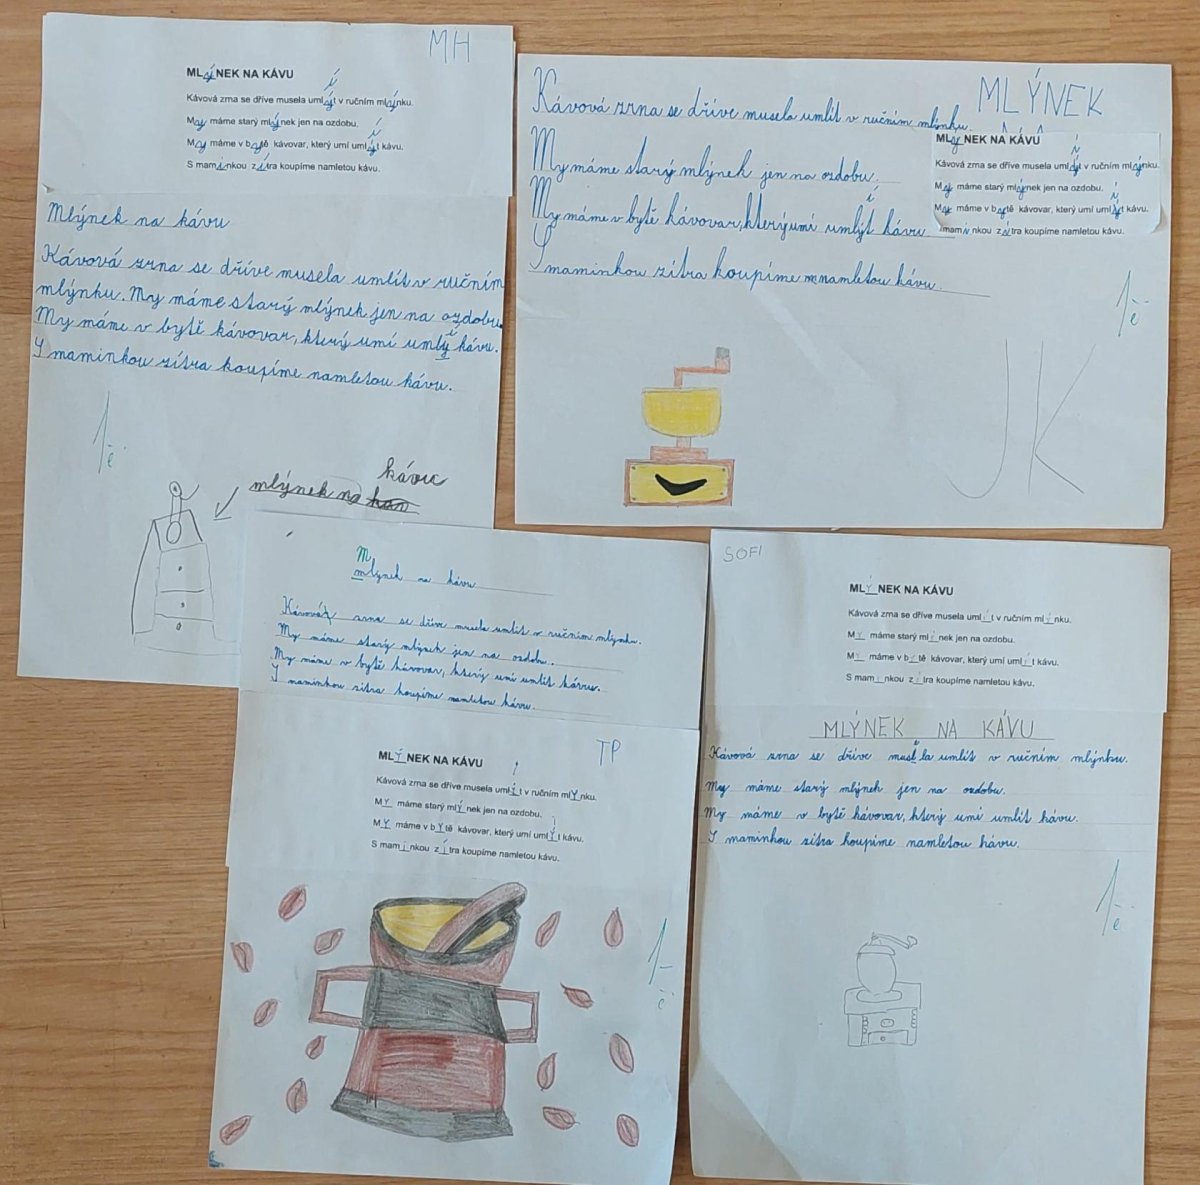 MH
MLýNEK NA KÁVU
í
Kávová zrna se dříve musela umlýt v ručním mlýnku.
My máme starý mlýnek jen na ozdobu.
í
My máme v bytě kávovar, který umí umlýt kávu.
S maminkou zítra koupíme namletou kávu.
Mlýnek na kávu
Kávová zrna se dříve musela umlít v ručním
mlýnku. My máme starý mlýnek jen na ozdobu.
My máme v bytě kávovar, který umí umlý kávu.
S maminkou zítra koupíme namletou kávu.
1
ě
kávu
mlýnek na
MLÝNEK
Kávová zrna se dříve musela umlít v ručním mlýnku.
My máme starý mlýnek jen na ozdobu.
í
My máme v bytě kávovar, který umí umlýt kávu
S maminkou zítra koupíme mnamletou kávu.
MLýNEK NA KÁVU
Kávová zrna se dříve musela umlýt v ručním mlýnku.
My máme starý mlýnek jen na ozdobu.
My máme v bytě kávovar, který umí umlýt kávu.
maminkou zítra koupíme namletou kávu.
1-
ě
JK
M
mlýnek na kávu
Kávová zrna se dříve musela umlít v ručním mlýnku.
My máme starý mlýnek jen na ozdobu.
My máme v bytě kávovar, který umí umlít kávu.
S maminkou zítra koupíme namletou kávu.
TP
MLÝNEK NA KÁVU
í
Kávová zrna se dříve musela umlÝt v ručním mlÝnku.
MY máme starý mlÝnek jen na ozdobu.
í
MY máme v bYtě kávovar, který umí umlÝt kávu.
S maminkou zítra koupíme namletou kávu.
1-
ě
SOFI
MLÝNEK NA KÁVU
Kávová zrna se dříve musela umlít v ručním mlýnku.
MY máme starý mlýnek jen na ozdobu.
MY máme v bytě kávovar, který umí umlít kávu.
S maminkou zítra koupíme namletou kávu.
MLÝNEK NA KÁVU
Kávová zrna se dříve musela umlít v ručním mlýnku.
My máme starý mlýnek jen na ozdobu.
My máme v bytě kávovar, který umí umlít kávu.
S maminkou zítra koupíme namletou kávu.
1-
ě